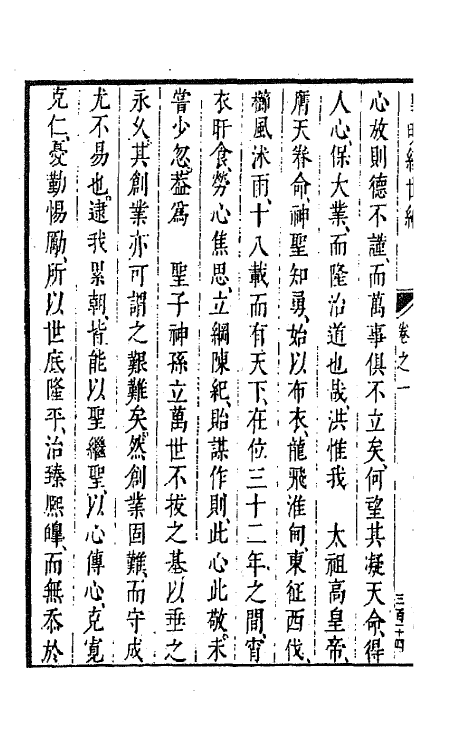 皇明經世編
卷之一
三百十四
心放則德不謹、而萬事俱不立矣、何望其凝天命、得
人心、保大業、而隆治道也哉、洪惟我　太祖高皇帝、
膺天眷命、神聖知勇、始以布衣、龍飛淮甸、東征西伐、
櫛風沐雨、十八載而有天下、在位三十二年、之間、宵
衣旰食、勞心焦思、立綱陳紀、貽謀作則、此心此敬、未
嘗少忽、葢爲　聖子神孫立萬世不拔之基以垂之
永久、其創業亦可謂之艱難矣、然創業固難、而守成
尤不易也、逮我累朝、皆能以聖繼聖、以心傳心、克寬
克仁、憂勤惕勵、所以世底隆平、治臻熙皥、而無忝於